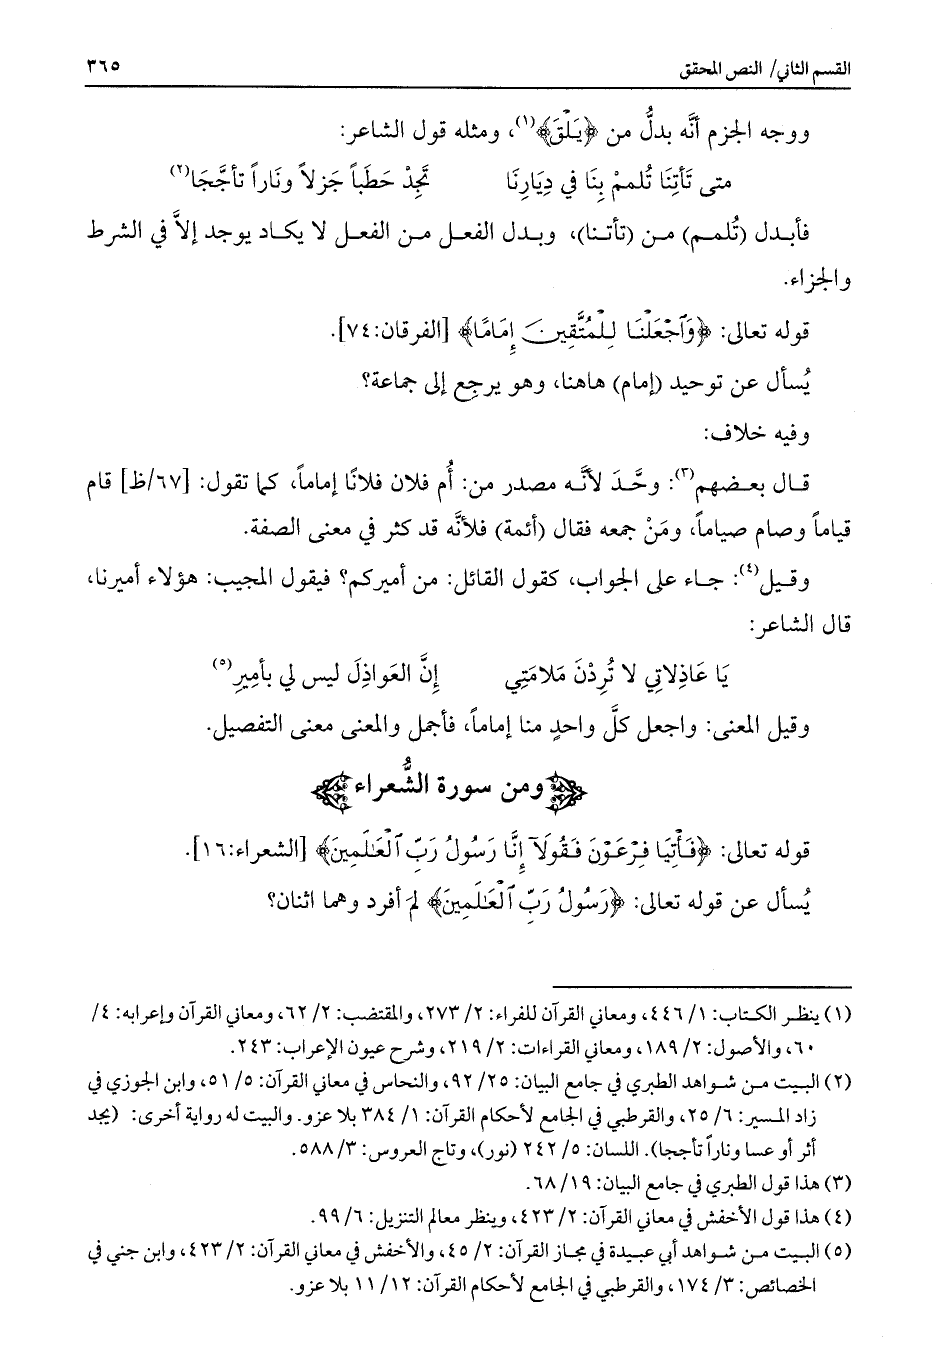 القسم الثاني/ النص المحقق ٣٦٥
ووجه الجزم أنَّه بدلٌ من ﴿يَلْقَ﴾(١)، ومثله قول الشاعر:
متى تَأتِنَا تُلممْ بِنَا في دِيَارِنَا تَجِدْ حَطَباً جَزلاً ونَاراً تأجَّجَا(٢)
فأبدل (تُلمم) من (تأتنا)، وبدل الفعل من الفعل لا يكاد يوجد إلاَّ في الشرط
والجزاء.
قوله تعالى: ﴿وَٱجْعَلْنَا لِلْمُتَّقِينَ إِمَامًا﴾ [الفرقان:٧٤].
يُسأل عن توحيد (إمام) هاهنا، وهو يرجع إلى جماعة؟
وفيه خلاف:
قال بعضهم(٣): وحَّدَ لأنَّه مصدر من: أُم فلان فلانًا إماماً، كما تقول: [٦٧/ظ] قام
قياماً وصام صياماً، ومَنْ جمعه فقال (أئمة) فلأنَّه قد كثر في معنى الصفة.
وقيل(٤): جاء على الجواب، كقول القائل: من أميركم؟ فيقول المجيب: هؤلاء أميرنا،
قال الشاعر:
يَا عَاذِلاتِي لا تُرِدْنَ مَلامَتِي إنَّ العَواذِلَ ليس لي بأمِيرِ(٥)
وقيل المعنى: واجعل كلَّ واحدٍ منا إماماً، فأجمل والمعنى معنى التفصيل.
ومن سورة الشُّعراء
قوله تعالى: ﴿فَأْتِيَا فِرْعَوْنَ فَقُولَآ إِنَّا رَسُولُ رَبِّ ٱلْعَـٰلَمِينَ﴾ [الشعراء:١٦].
يُسأل عن قوله تعالى: ﴿رَسُولُ رَبِّ ٱلْعَـٰلَمِينَ﴾ لمَ أفرد وهما اثنان؟
(١) ينظر الكتاب: ١/ ٤٤٦، ومعاني القرآن للفراء: ٢/ ٢٧٣، والمقتضب: ٢/ ٦٢، ومعاني القرآن وإعرابه: ٤/
٦٠، والأصول: ٢/ ١٨٩، ومعاني القراءات: ٢/ ٢١٩، وشرح عيون الإعراب: ٢٤٣.
(٢) البيت من شواهد الطبري في جامع البيان: ٢٥/ ٩٢، والنحاس في معاني القرآن: ٥/ ٥١، وابن الجوزي في
زاد المسير: ٦/ ٢٥، والقرطبي في الجامع لأحكام القرآن: ١/ ٣٨٤ بلا عزو. والبيت له رواية أخرى: (يجد
أثر أو عسا وناراً تأججا). اللسان: ٥/ ٢٤٢ (نور)، وتاج العروس: ٣/ ٥٨٨.
(٣) هذا قول الطبري في جامع البيان: ١٩/ ٦٨.
(٤) هذا قول الأخفش في معاني القرآن: ٢/ ٤٢٣، وينظر معالم التنزيل: ٦/ ٩٩.
(٥) البيت من شواهد أبي عبيدة في مجاز القرآن: ٢/ ٤٥، والأخفش في معاني القرآن: ٢/ ٤٢٣، وابن جني في
الخصائص: ٣/ ١٧٤، والقرطبي في الجامع لأحكام القرآن: ١٢/ ١١ بلا عزو.